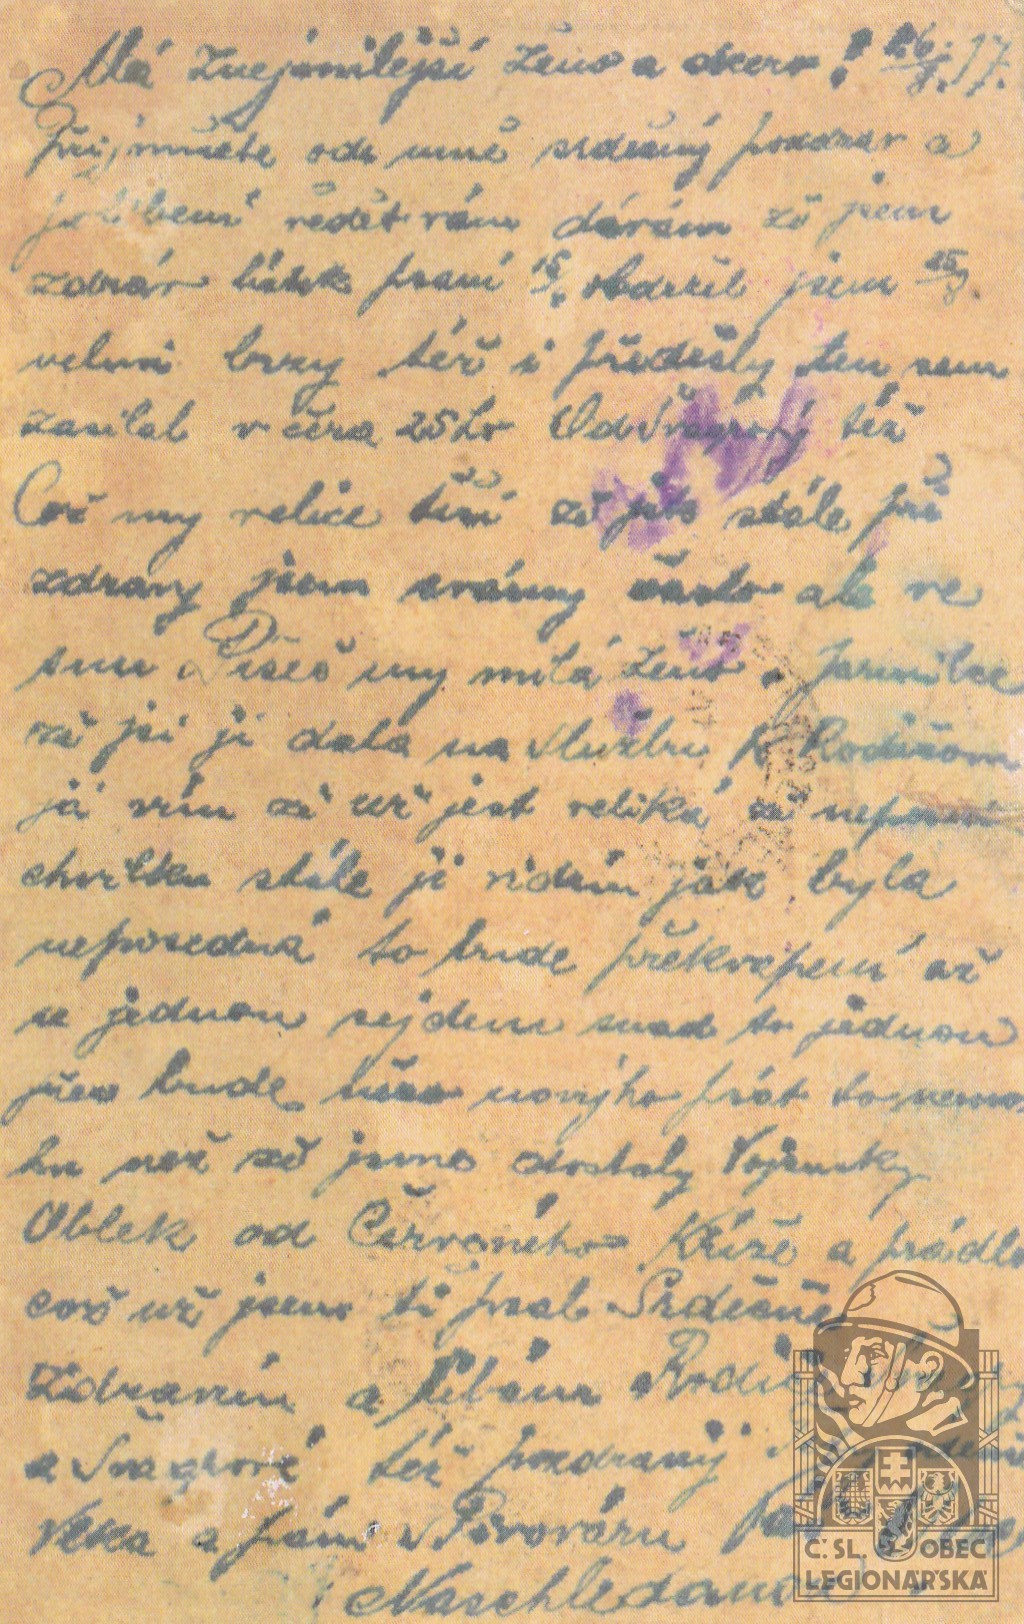 Má Znejmilejší Ženo a dcero! 26. 17.
Přijmůete ode mně srdečný pozdrav a
políbení vědět vám dávám že jsem
zdráv lístek psaní obdržel jsem
velmi brzy též i předešly ten sem
zasilal v čera 25ho Od Švagrový též
Což my velice těší že jste stále při
zdravy jsem svámy často ale ve
snu Píšeš my milá Ženo o Jarmilce
že jsi ji dala na službu k Rodičom
já vím že už jest veliká že
chvilku stále ji vidím jak byla
neposedná to bude překvapení až
se jednou sejdem snad to jednou
přeo bude novýho psát to nemo-
hu než že jsme dostaly Vojensky
Oblek od Červeného Kříže a prádlo
což už jsem ti psal Srdečně
Zdravím a líbám
a Švagrová též pozdravy
a pání v Pivováru
Naschledanou
Č.SL. OBEC
LEGIONÁŘSKÁ